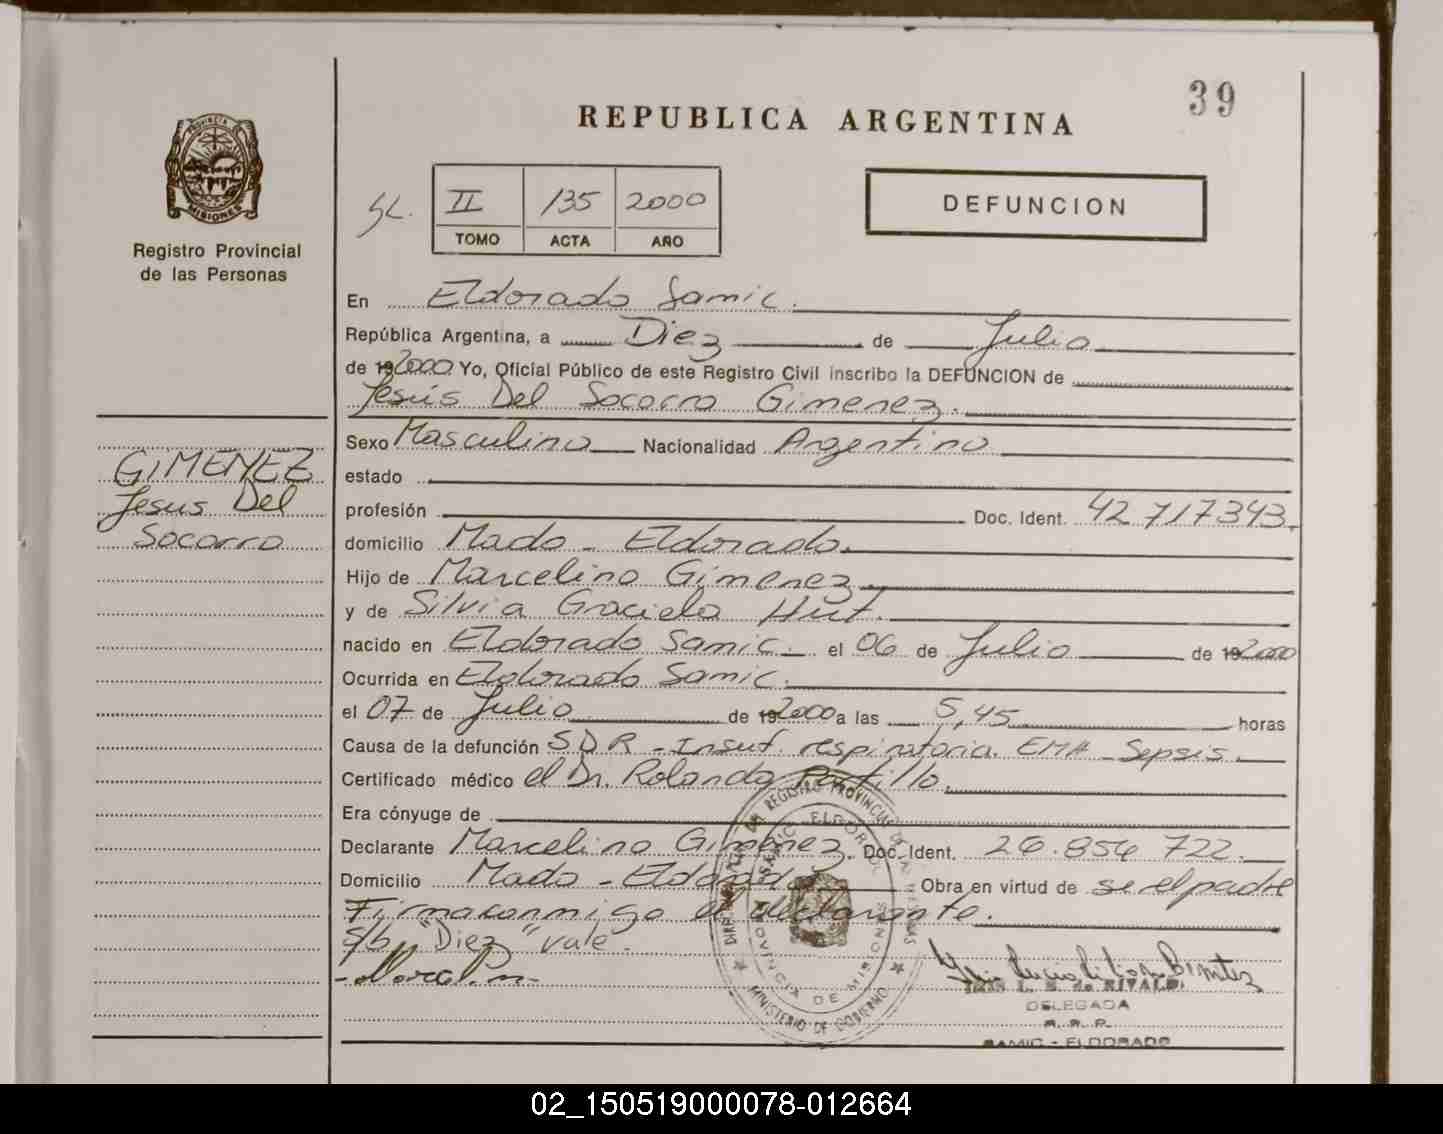 39
REPUBLICA ARGENTINA
PROVINCIA
MISIONES
Registro Provincial
de las Personas
II 135 2000
TOMO ACTA AÑO
DEFUNCION
En Eldorado Samic.
República Argentina, a Diez de Julio
de 192000 Yo, Oficial Público de este Registro Civil inscribo la DEFUNCION de
Jesús Del Socorro Gimenez.
Sexo Masculino Nacionalidad Argentino
GIMENEZ
Jesus Del
Socorro
estado
profesión Doc. Ident. 42 717343.
domicilio Mado - Eldorado.
Hijo de Marcelino Gimenez
y de Silvia Graciela
nacido en Eldorado Samic. el 06 de Julio de 192000
Ocurrida en Eldorado Samic.
el 07 de Julio de 192000 a las 5,45 horas
Causa de la defunción S.D.R - Insuf. respiratoria. EMH - Sepsis.
Certificado médico el Dr. Rolando Portillo.
Era cónyuge de
Declarante Marcelino Gimenez. Doc. Ident. 26.856 722.
Domicilio Mado - Eldorado Obra en virtud de se el padre
Firma conmigo el declarante.
s/b "Diez" vale.
DELEGADA
R. R. P.
SAMIC - ELDORADO
MINISTERIO DE GOBIERNO
02_150519000078-012664